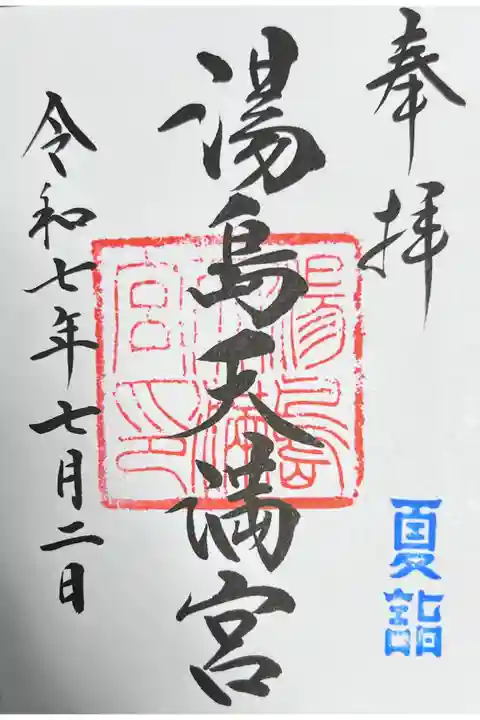 奉拝
夏詣
湯島天満宮
湯島天満宮印
令和七年七月二日